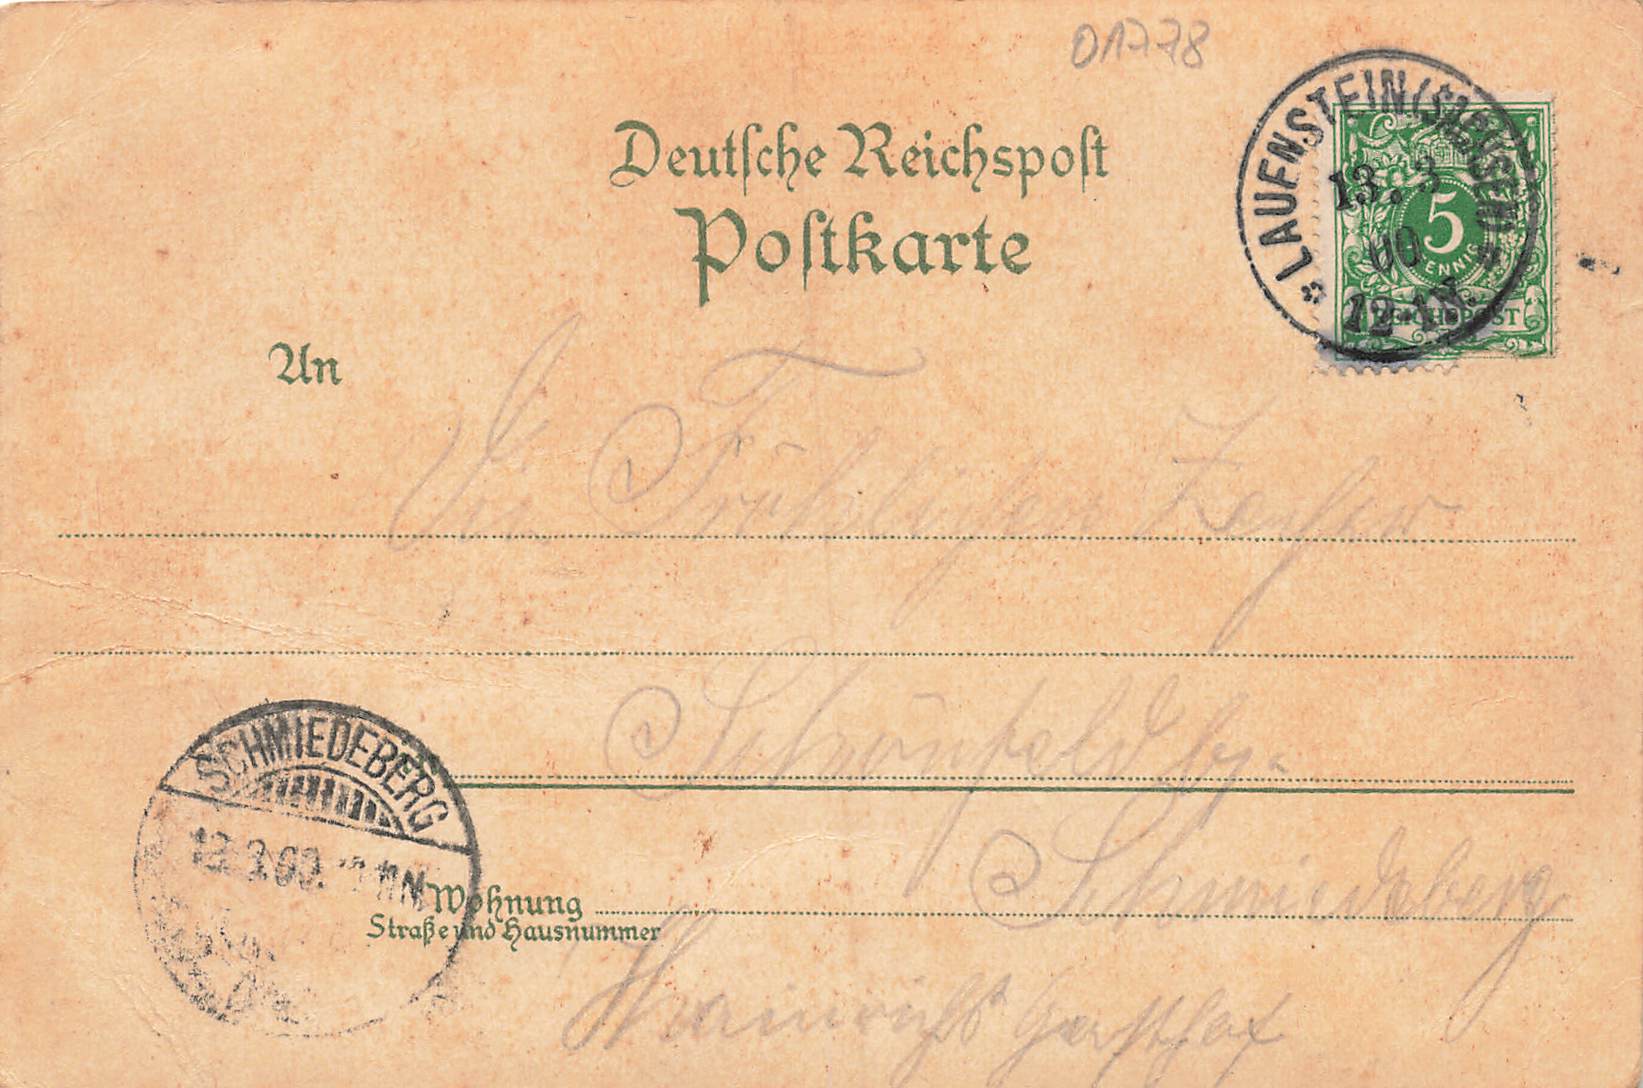 01778
Deutsche Reichspost
Postkarte
LAUENSTEIN (SACHSEN)
13. 3
00
12-1N.
5
PFENNIG
REICHSPOST
An
Die Fröhlichen Zecher
Schönfeld by.
Schmiedeberg
SCHMIEDEBERG
13.3.00.
Wohnung
Straße und Hausnummer
Heinrichs Gasthof